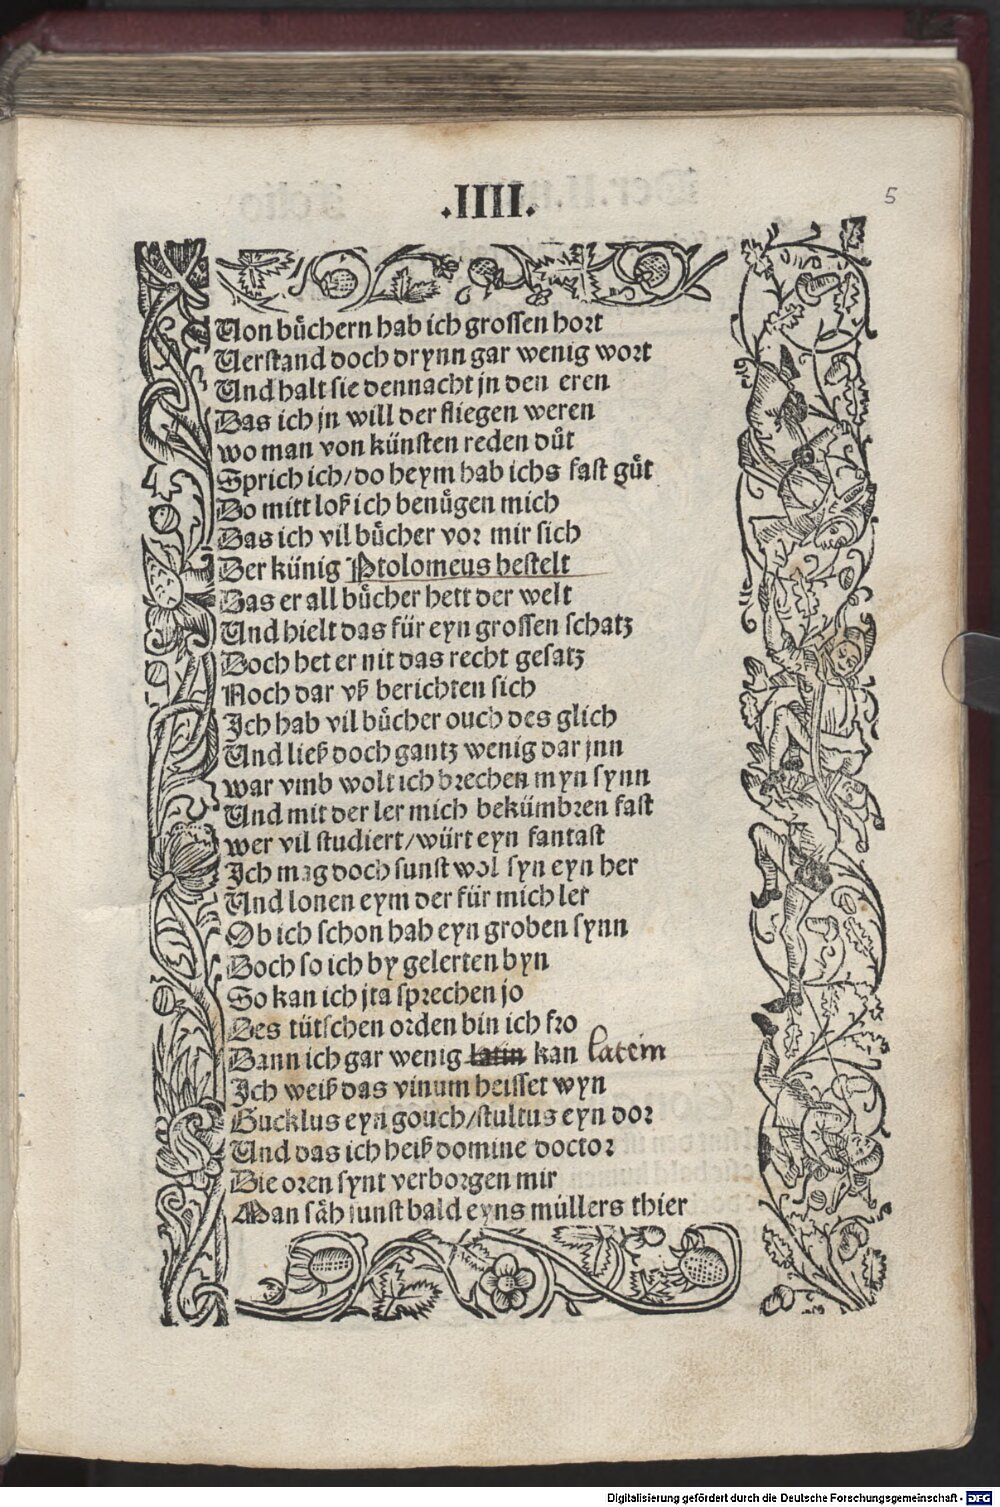 .IIII.
5
Von buͤchern hab ich grossen hort
Verstand doch drynn gar wenig wort
Und halt sie dennacht jn den eren
Das ich jn will der fliegen weren
wo man von künsten reden duͦt
Sprich ich/do heym hab ichs fast guͦt
Do mitt loß ich benuͤgen mich
Das ich vil buͤcher vor mir sich
Der künig Ptolomeus bestelt
Das er all buͤcher hett der welt
Und hielt das für eyn grossen schatz
Doch het er nit das recht gesatz
Noch dar vß berichten sich
Ich hab vil buͤcher ouch des glich
Und ließ doch gantz wenig dar jnn
war vmb wolt ich brechen myn synn
Und mit der ler mich bekümbren fast
wer vil studiert/würt eyn fantast
Ich mag doch sunst wol syn eyn her
Und lonen eym der für mich ler
Ob ich schon hab eyn groben synn
Doch so ich by gelerten byn
So kan ich jta sprechen jo
Des tütschen orden bin ich fro
Dann ich gar wenig latin kan latein
Ich weiß das vinum heisset wyn
Gucklus eyn gouch/stultus eyn dor
Und das ich heiß domine doctor
Die oren synt verborgen mir
Man saͤh sunst bald eyns müllers thier
Digitalisierung gefördert durch die Deutsche Forschungsgemeinschaft - DFG